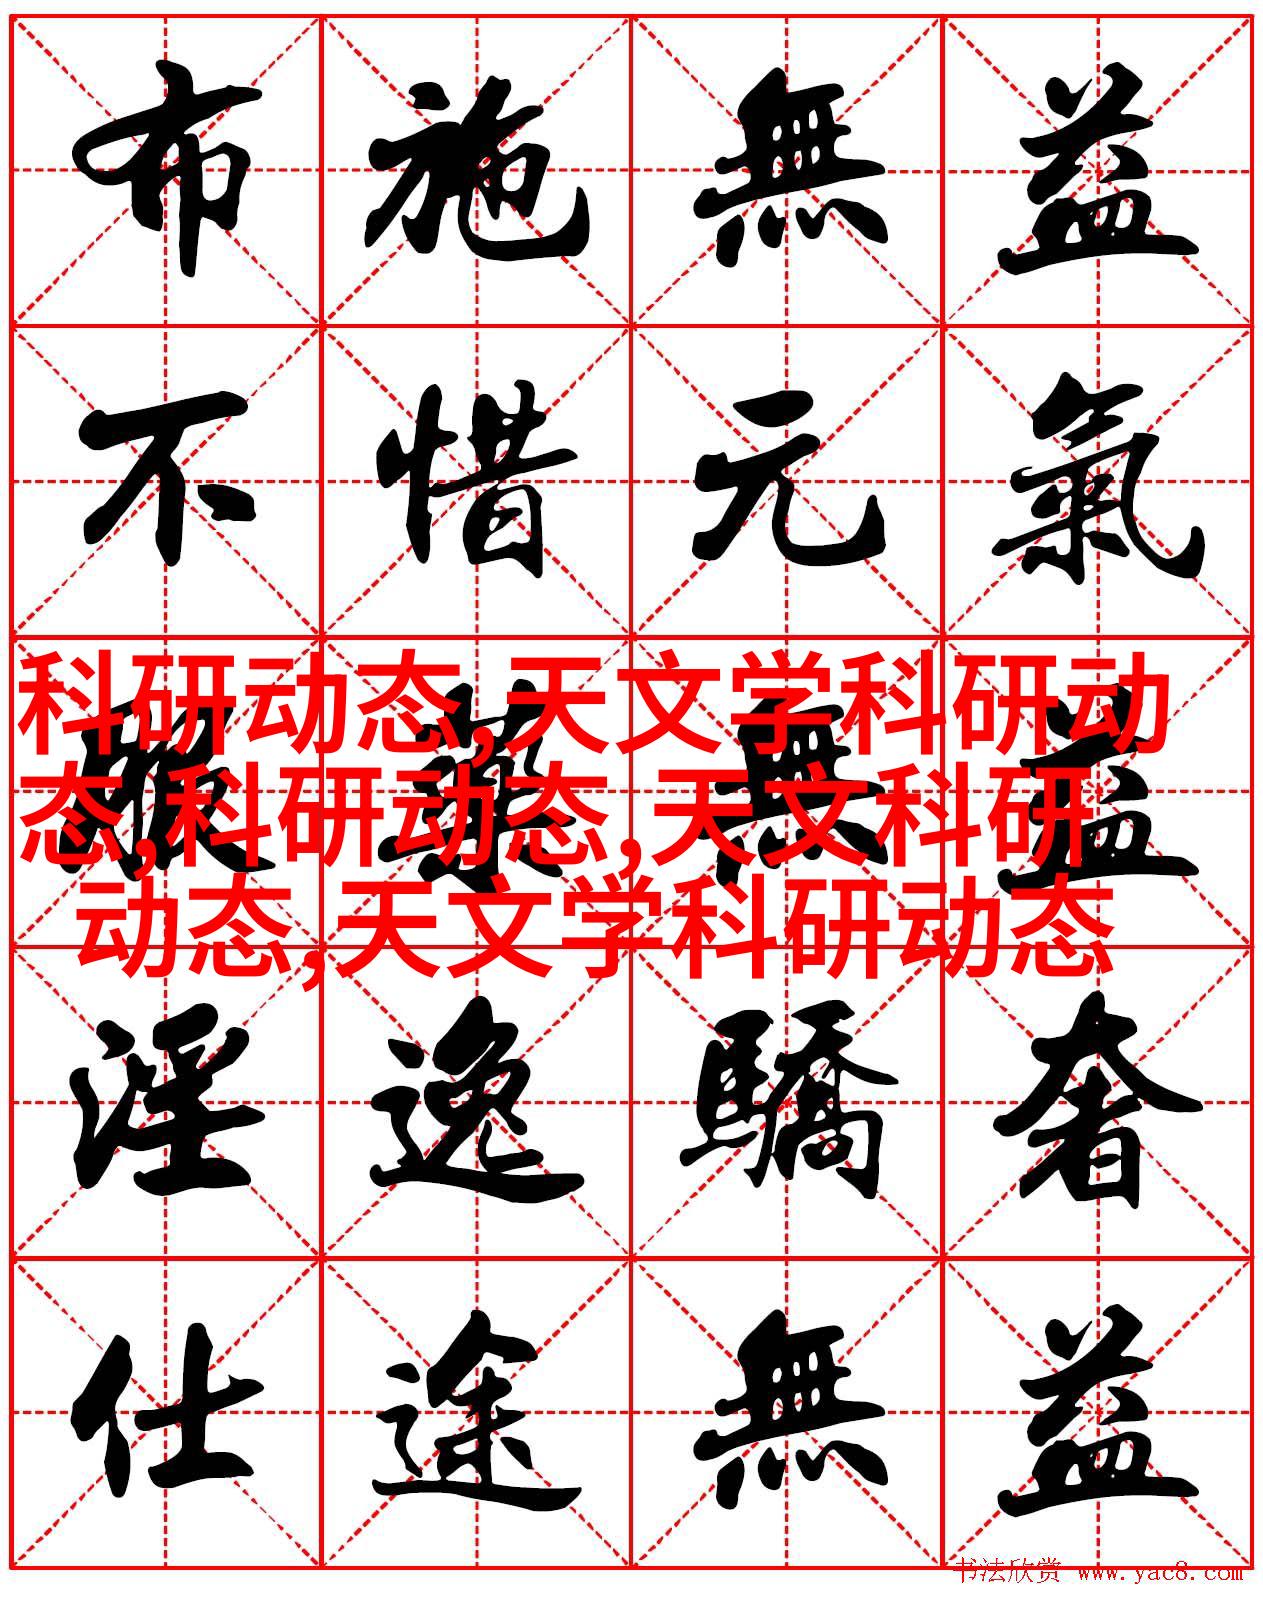 布施無益
不惜元氣
服藥無益
科研动态,天文学科研动
态,科研动态,天文科研
动态,天文学科研动态
淫逸驕奢
仕途無益
书法欣赏 www.yac8.com